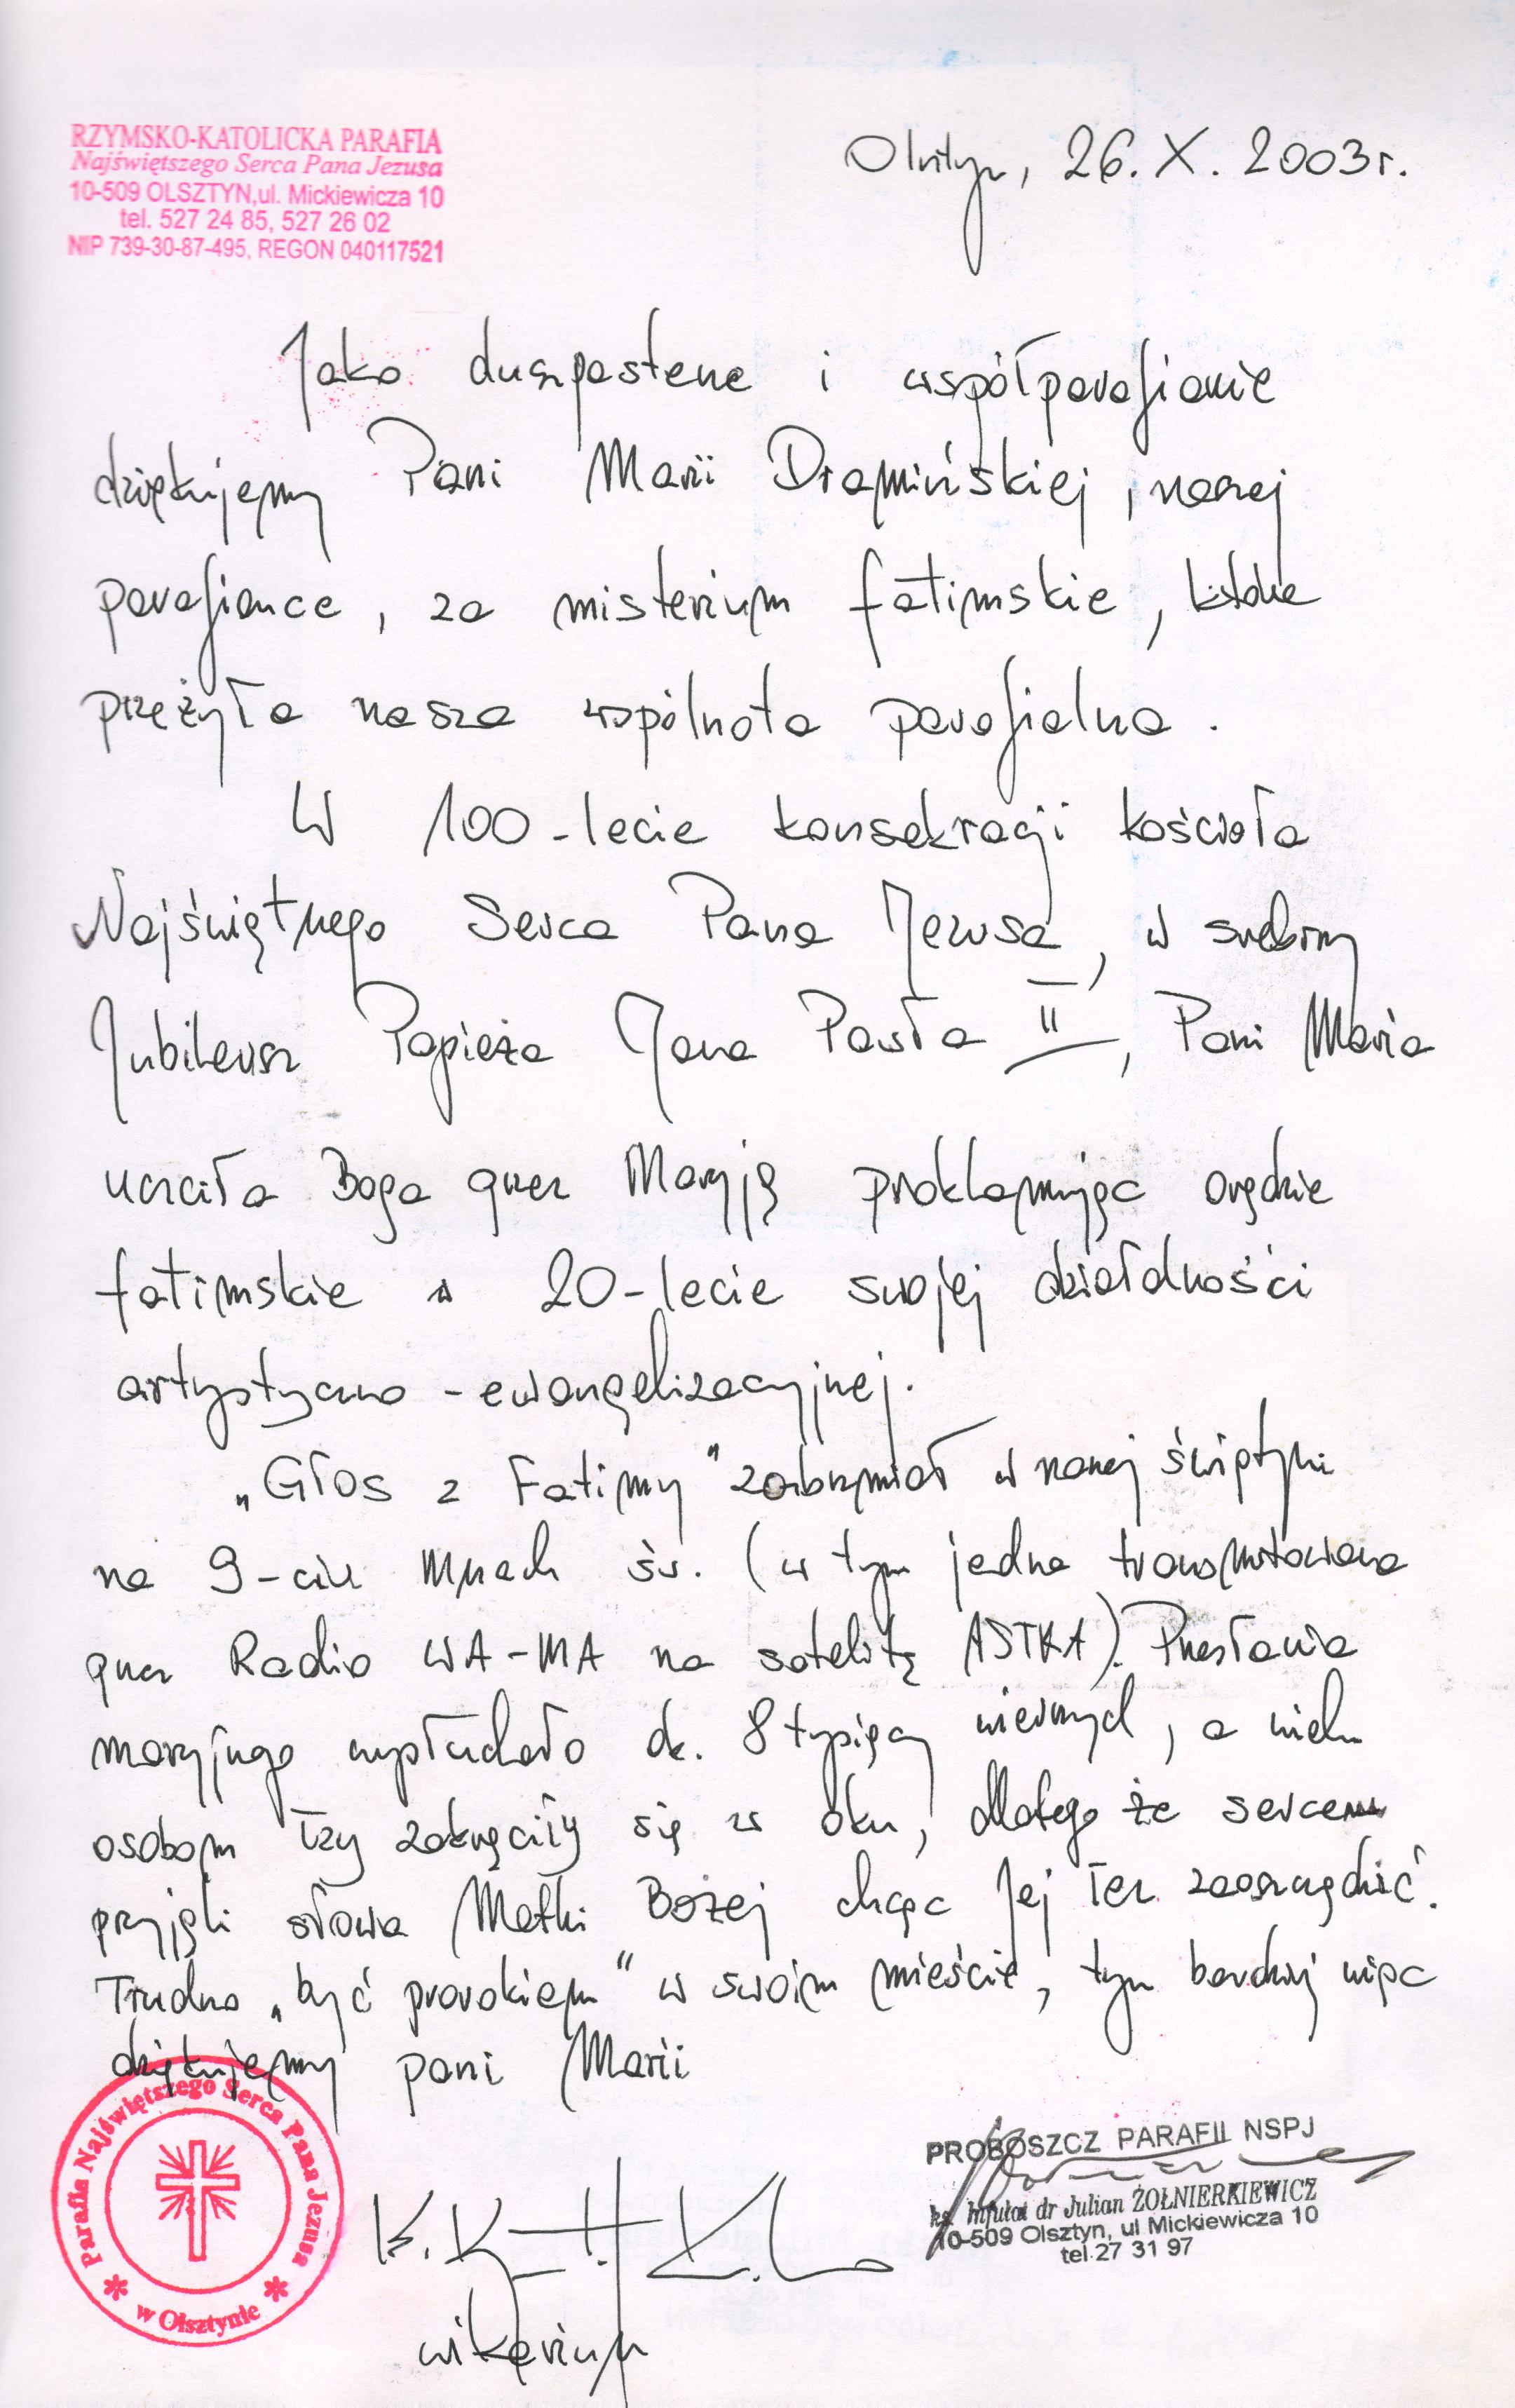 RZYMSKO-KATOLICKA PARAFIA
Najświętszego Serca Pana Jezusa
10-509 OLSZTYN, ul. Mickiewicza 10
tel. 527 24 85, 527 26 02
NIP 739-30-87-495, REGON 040117521
Olsztyn, 26. X. 2003 r.
Jako duszpasterze i współparafianie
dziękujemy Pani Marii Dramińskiej, naszej
parafiance, za misterium fatimskie, które
przeżyła nasza wspólnota parafialna.
W 100-lecie konsekracji kościoła
Najświętszego Serca Pana Jezusa, w srebrny
Jubileusz Papieża Jana Pawła II, Pani Maria
uczciła Boga przez Maryję proklamując orędzie
fatimskie w 20-lecie swojej działalności
artystyczno-ewangelizacyjnej.
„Głos z Fatimy" zabrzmiał w naszej świątyni
na 9-ciu Mszach św. (w tym jedna transmitowana
przez Radio WA-MA na satelitę ASTRA). Przesłania
maryjnego wysłuchało ok. 8 tysięcy wiernych, a wielu
osobom łzy zakręciły się w oku, dlatego że sercem
przyjęli słowa Matki Bożej chcąc Jej łez zaoszczędzić.
Trudno „być prorokiem" w swoim mieście, tym bardziej więc
dziękujemy pani Marii
Parafia Najświętszego Serca Pana Jezusa
w Olsztynie
PROBOSZCZ PARAFII NSPJ
ks. infułat dr Julian ŻOŁNIERKIEWICZ
10-509 Olsztyn, ul Mickiewicza 10
tel. 27 31 97
wikariusz